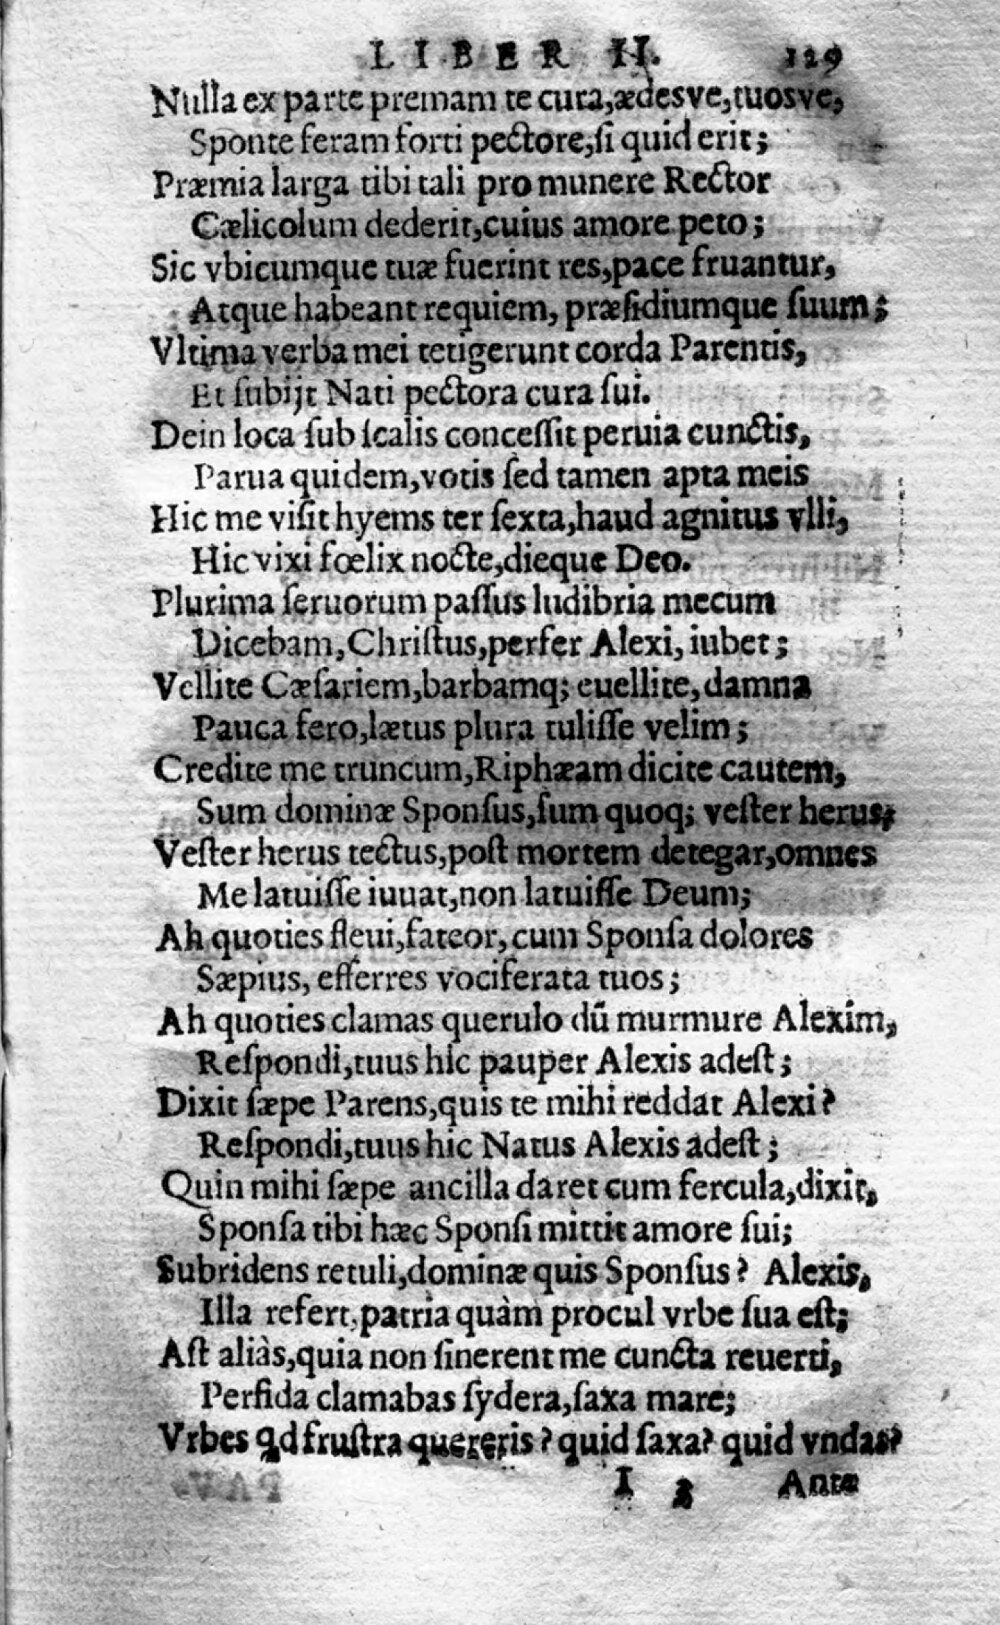 LIBER II. 129
Nulla ex parte premam te cura,ædesve,tuosve,
Sponte feram forti pectore,ſi quid erit;
Præmia larga tibi tali pro munere Rector
Cælicolum dederit,cuius amore peto;
Sic vbicumque tuæ fuerint res,pace fruantur,
Atque habeant requiem, præſidiumque ſuum;
Vltima verba mei tetigerunt corda Parentis,
Et ſubijt Nati pectora cura ſui.
Dein loca ſub ſcalis conceſſit peruia cunctis,
Parua quidem,votis ſed tamen apta meis
Hic me viſit hyems ter ſexta,haud agnitus vlli,
Hic vixi fœlix nocte,dieque Deo.
Plurima ſeruorum paſſus ludibria mecum
Dicebam,Chriſtus,perfer Alexi, iubet;
Vellite Cæſariem,barbamq; euellite,damna
Pauca fero,lætus plura tuliſſe velim;
Credite me truncum,Riphæam dicite cautem,
Sum dominæ Sponſus,ſum quoq; veſter herus;
Veſter herus tectus,poſt mortem detegar,omnes
Me latuiſſe iuuat,non latuiſſe Deum;
Ah quoties fleui,fateor,cum Sponſa dolores
Sæpius, efferres vociferata tuos;
Ah quoties clamas querulo dū murmure Alexim,
Reſpondi,tuus hic pauper Alexis adeſt;
Dixit ſæpe Parens,quis te mihi reddat Alexi?
Reſpondi,tuus hic Natus Alexis adeſt;
Quin mihi ſæpe ancilla daret cum fercula,dixit,
Sponſa tibi hæc Sponſi mittit amore ſui;
Subridens retuli,dominæ quis Sponſus? Alexis,
Illa refert,patria quàm procul vrbe ſua eſt;
Aſt aliàs,quia non ſinerent me cuncta reuerti,
Perfida clamabas ſydera,ſaxa mare;
Vrbes qd fruſtra quereris? quid ſaxa? quid vndas?
I 3 Ante